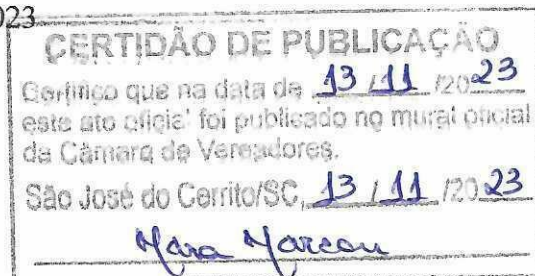 023
CERTIDÃO DE PUBLICAÇÃO
Certifico que na data de 13/11/2023
este ato oficial foi publicado no mural oficial
da Câmara de Vereadores.
São José do Cerrito/SC, 13/11/2023
Mara Marcon